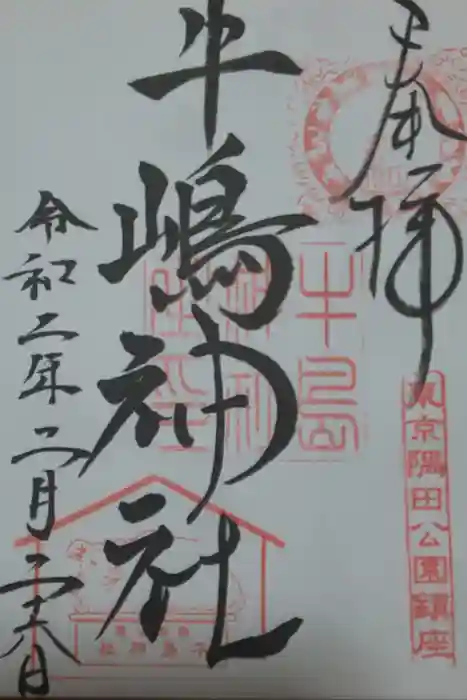 奉拝
東京隅田公園鎮座
牛嶋神社
牛島
神社
令和二年二月二十八日